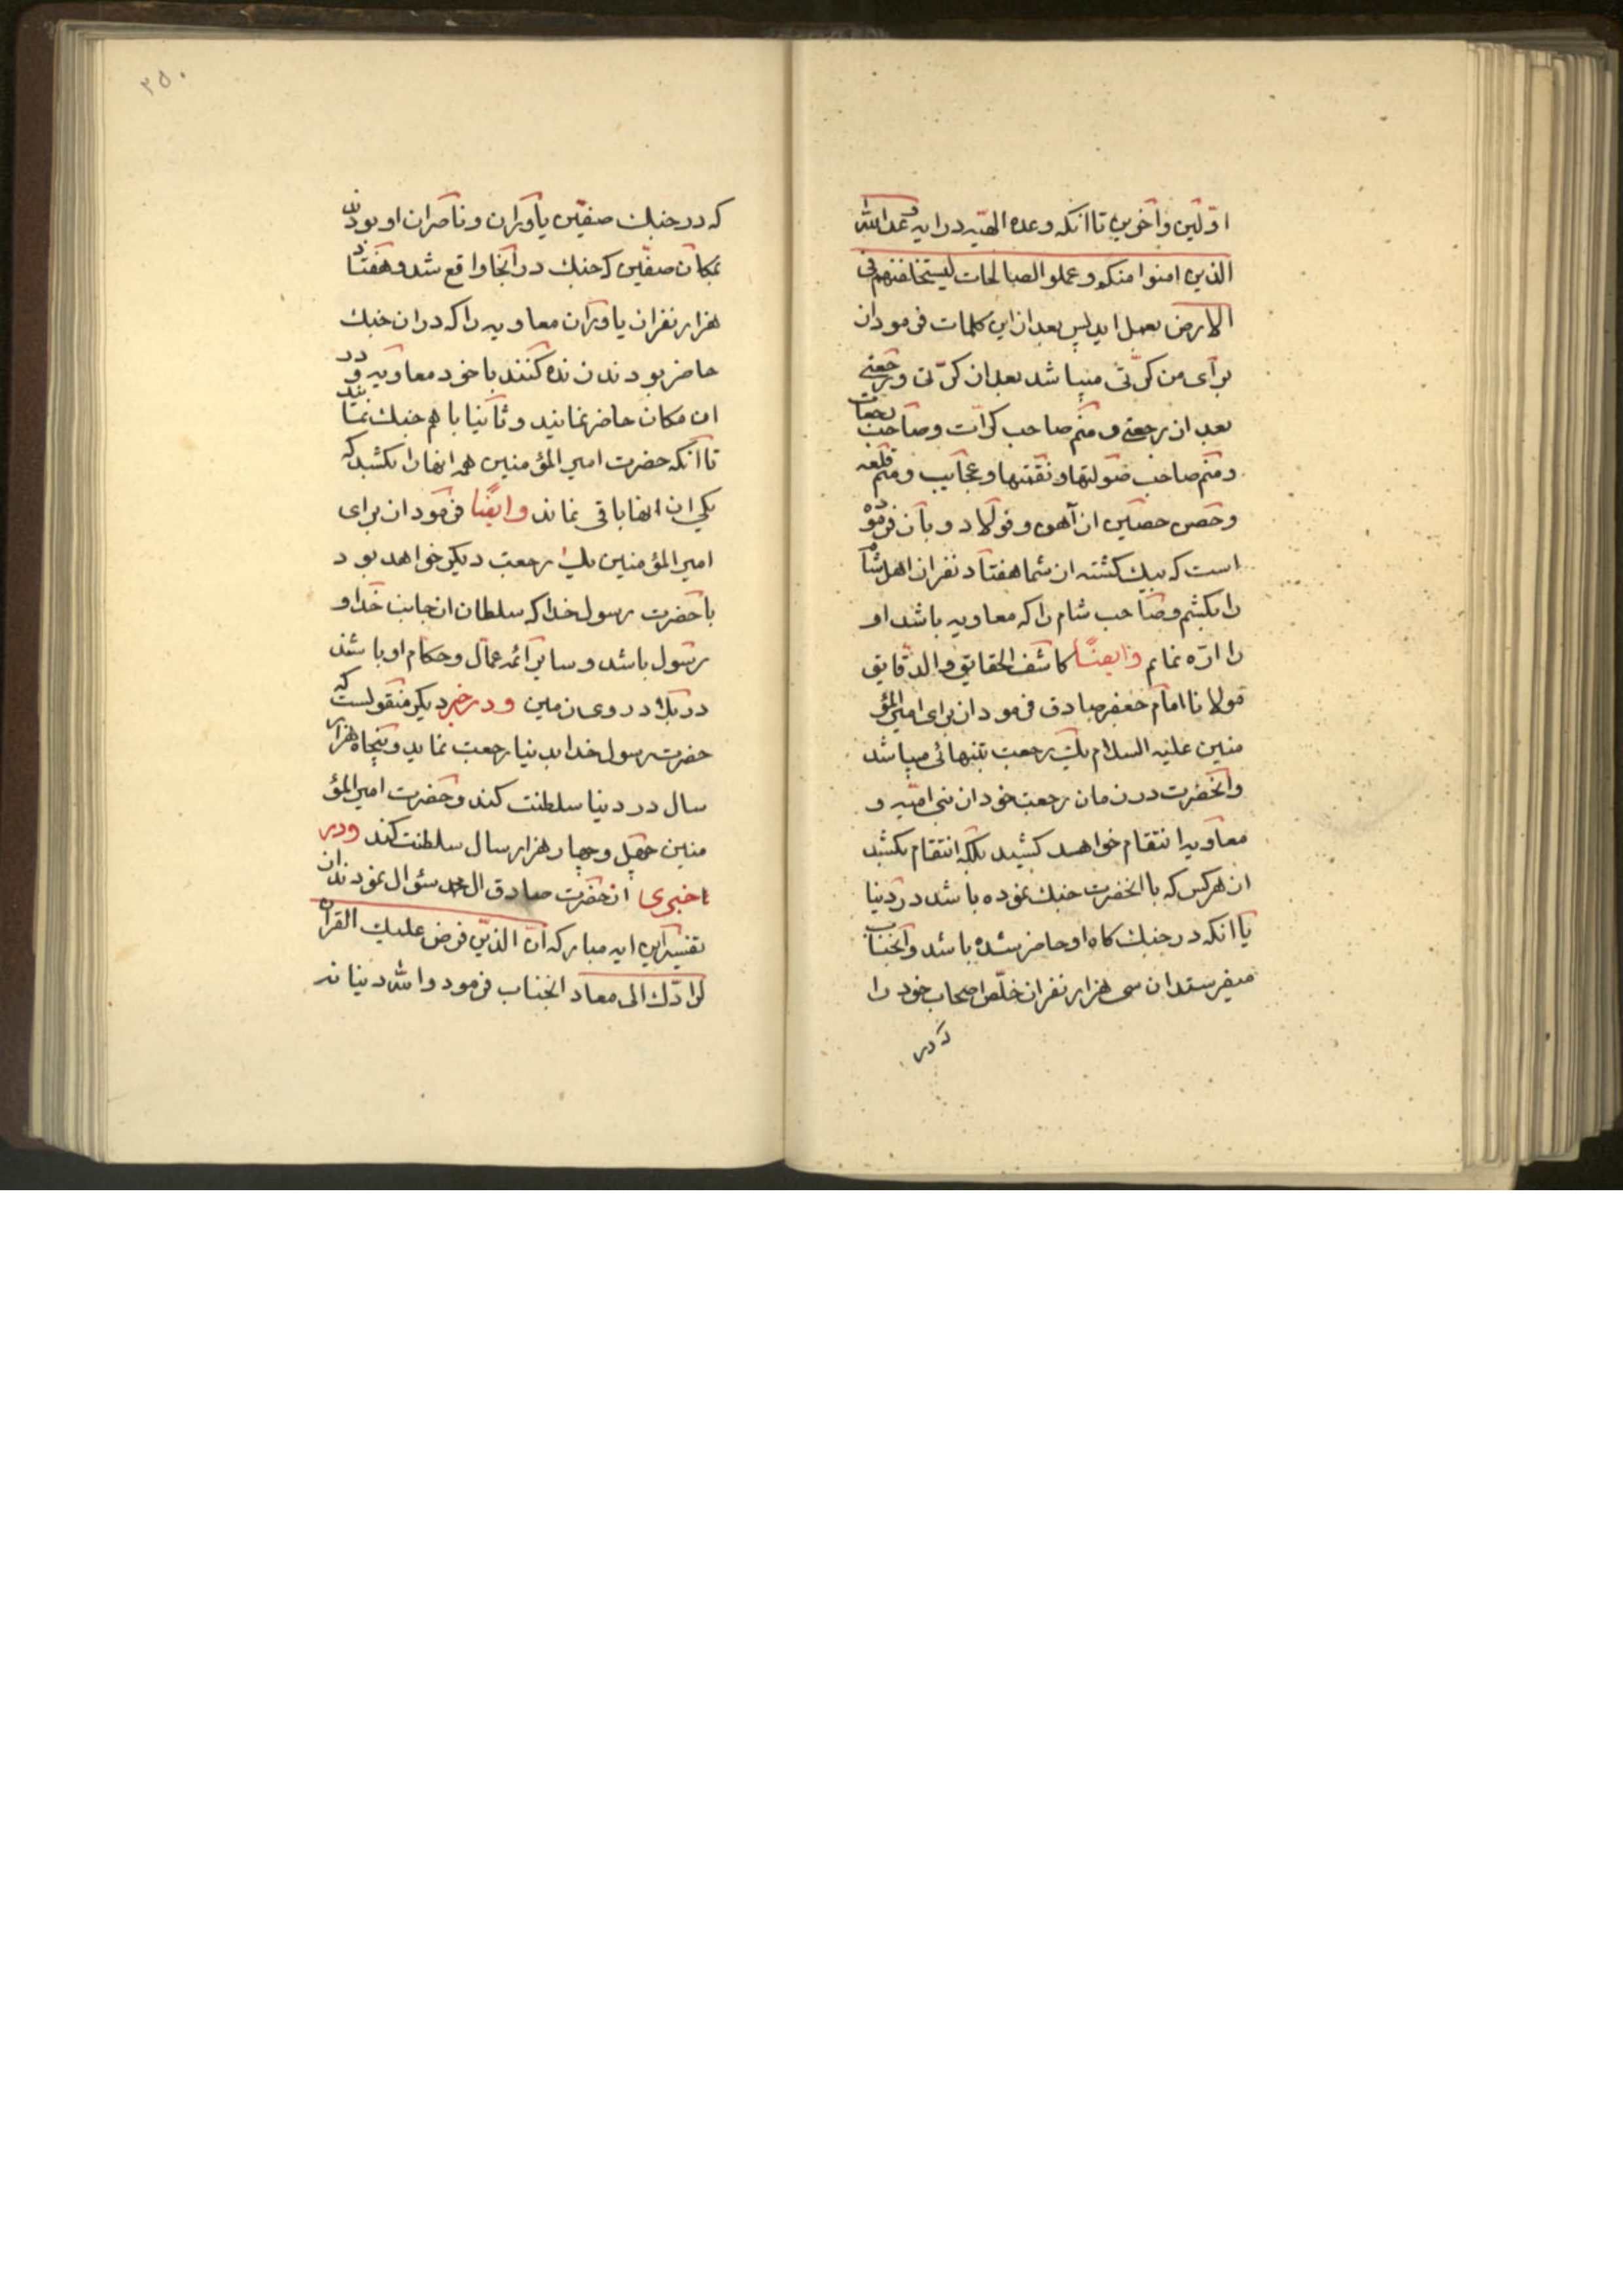 اوّلین و آخرین تا انکه وعده الهیّه در ایه وعد الله
الذین امنوا منکم و عملو الصالحات لیستخلفنهم فی
الارض بعمل اید پس بعد از این کلمات فرمود از
برای من کرّتی میباشد بعد از کرّتی و رجعتی
بعد از رجعتی و منم صاحب کرّات و صاحب رجعات
و منم صاحب صولتها و نقمتها و عجایب و منم قلعه
و حصن حصین از آهن و فولاد و بآن فرموده
است که بیک کشته از شما هفتاد نفر از اهل شام
را بکشم و صاحب شام را که معاویه باشد او
را ارّه نمایم و ایضًا کاشف الحقایق و الدّقایق
مولانا امام جعفر صادق فرمود از برای امیر المؤ
منین علیه السلام یک رجعت بتنهائی میباشد
و انحضرت در زمان رجعت خود از بنی امیّه و
معاویه انتقام خواهد کشید بلکه انتقام بکشد
از هرکس که با انحضرت جنک نموده باشد در دنیا
یا انکه در جنک کاه او حاضر شده باشد و انجناب
میفرستد ان سی هزار نفر از خلّص اصحاب خود را
که در
۲۵۰
که در جنک صفّین یاوران و ناصران او بودند
بمکان صفّین که جنک در انجا واقع شد و هفتاد
هزار نفر از یاوران معاویه را که در ان جنک
حاضر بودند زنده کنند با خود معاویه و در
ان مکان حاضر نمایند و ثانیا با هم جنک نمایند
تا انکه حضرت امیر المؤمنین همه انها را بکشد که
یکی از انها باقی نماند و ایضًا فرمود از برای
امیر المؤمنین یک رجعت دیکر خواهد بود
با حضرت رسول خدا که سلطان از جانب خدا و
رسول باشد و سایر ائمه عمّال و حکام او باشند
در روی زمین و در خبر دیکر منقولست که
حضرت رسول خدا بدنیا رجعت نماید و پنجاه هزار
سال در دنیا سلطنت کند و حضرت امیر المؤ
منین چهل و چهار هزار سال سلطنت کند و در
اخبری از حضرت صادق ال محمد سئوال نمودند از
تفسیر این ایه مبارکه انّ الذّی فرض علیک القران
لرادّک الی معاد انجناب فرمود و الله دنیا نه